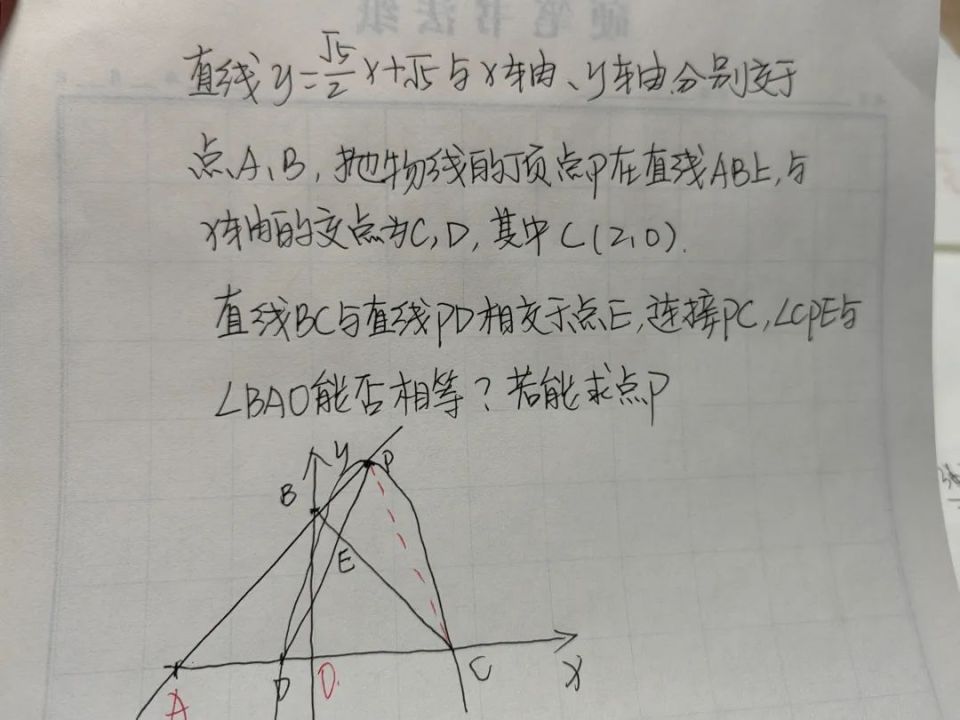 硬笔书法纸
直线y=√5/2x+√5与x轴、y轴分别交于
点A、B,抛物线的顶点P在直线AB上,与
x轴的交点为C,D,其中C(2,0).
直线BC与直线PD相交于点E,连接PC,∠CPE与
∠BAO能否相等?若能求点P
y
P
B
E
A
D
O
C
x